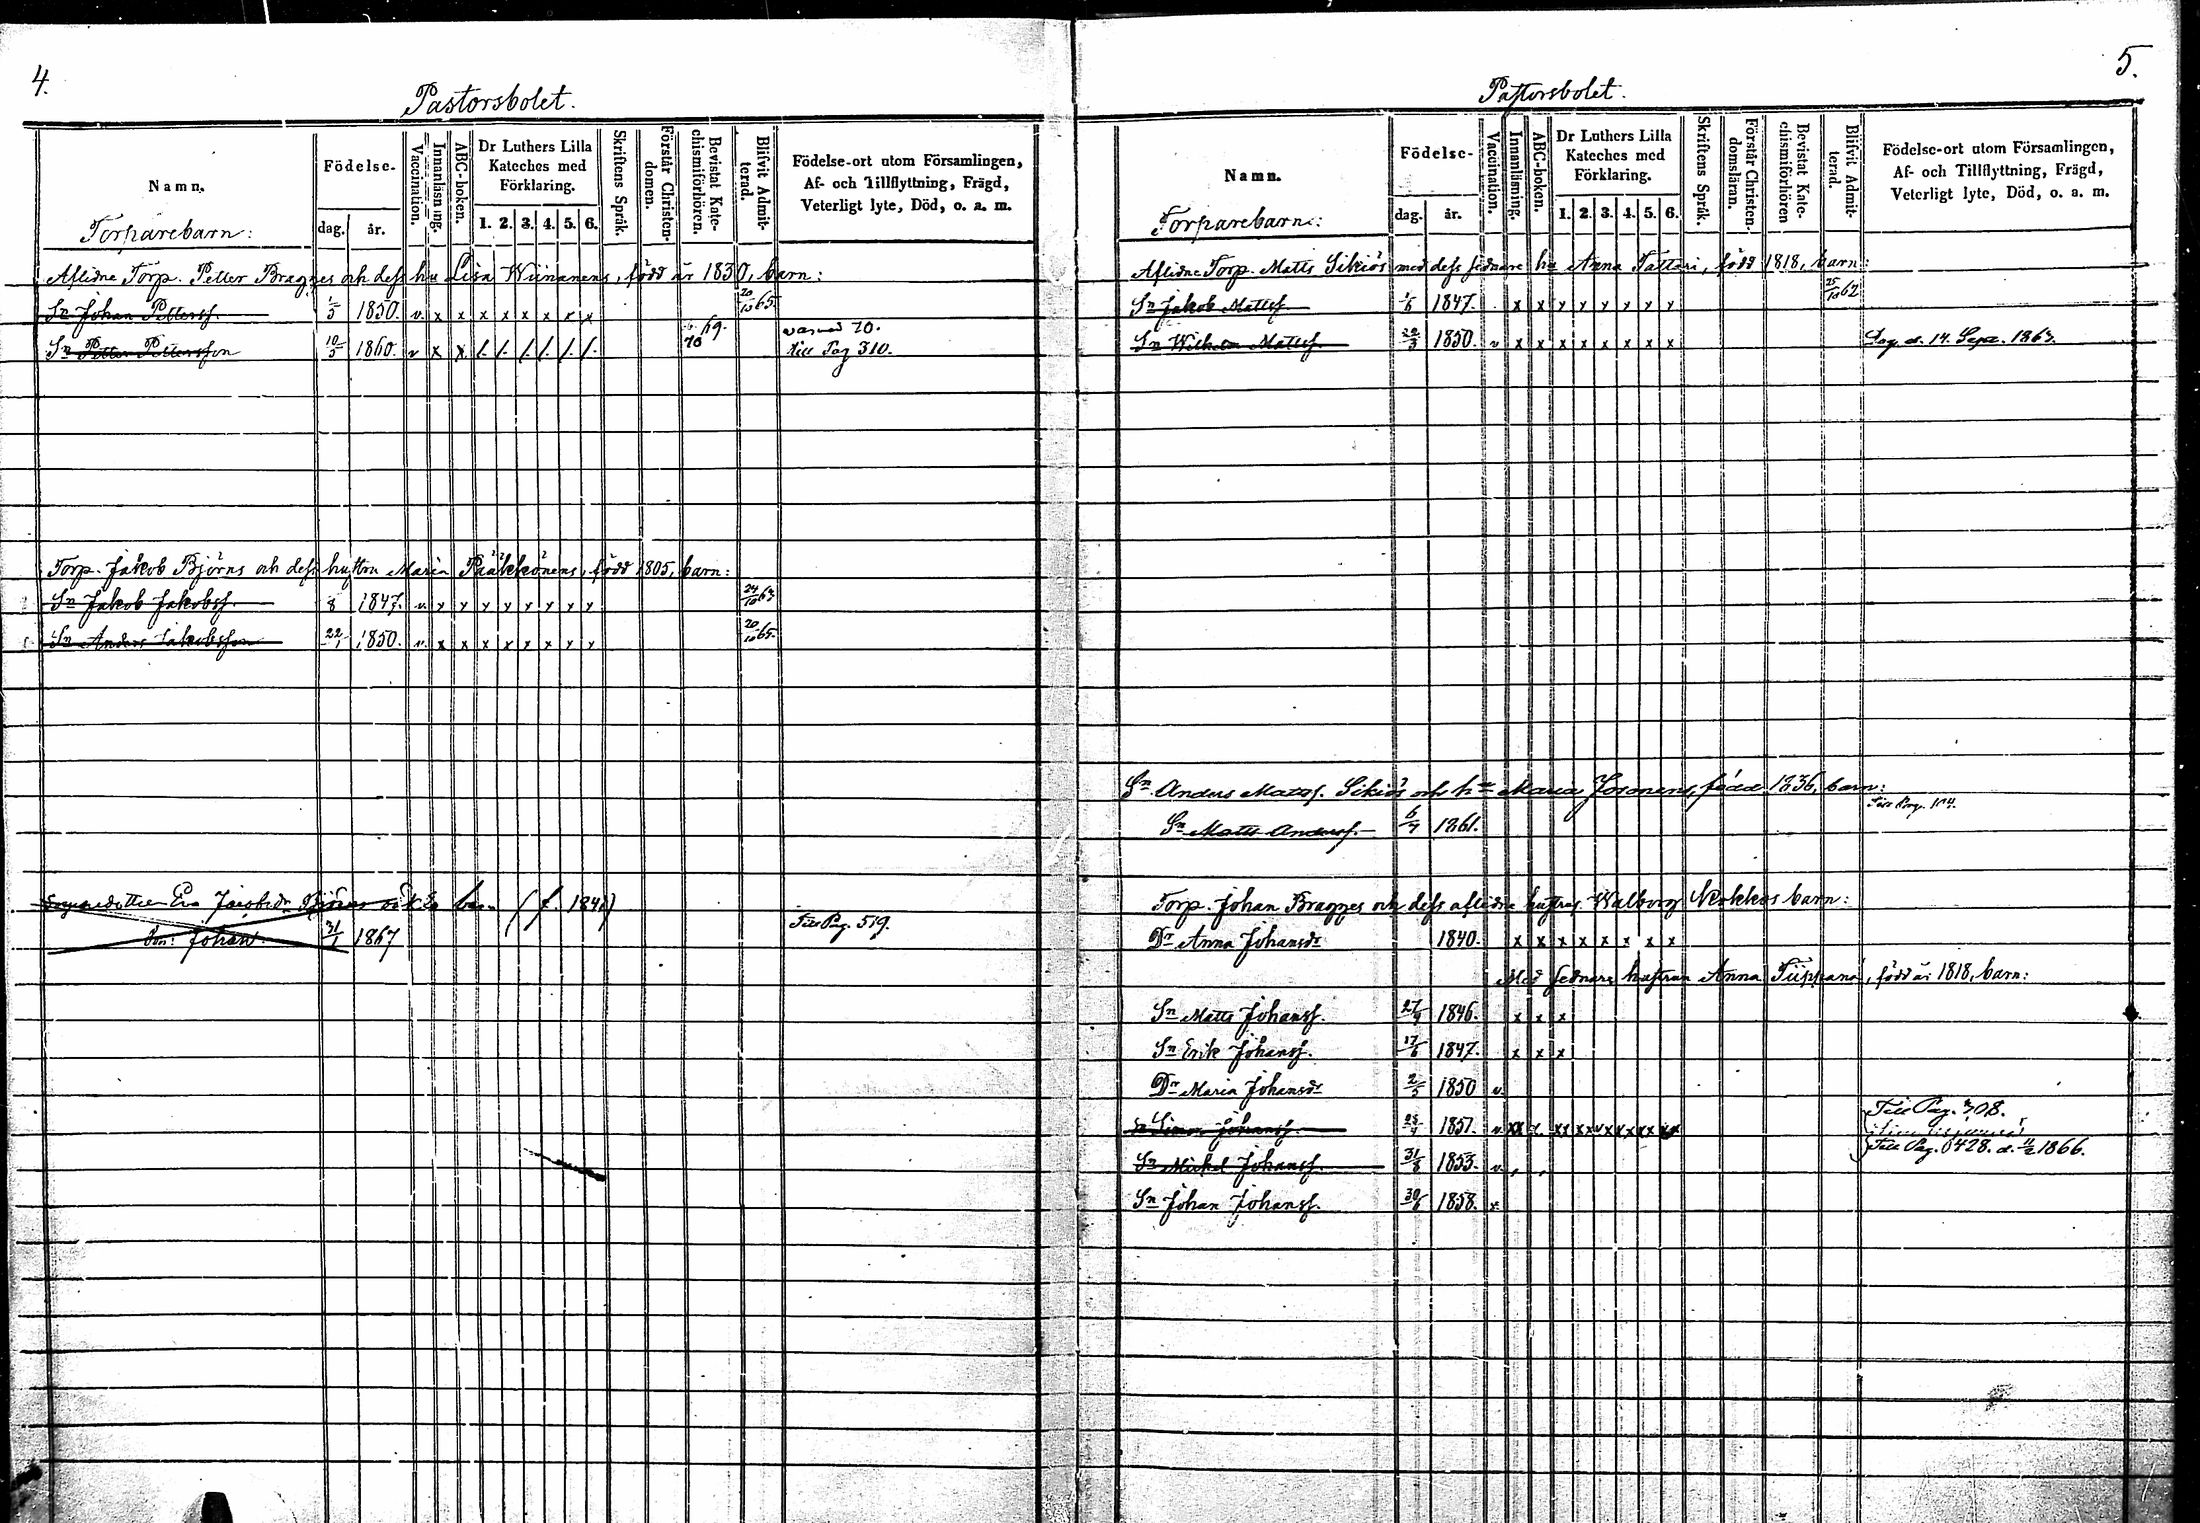 4.
Pastorsbolet.
Namn.
Födelse-
dag. år.
Vaccination.
Innanläsning.
ABC-boken.
Dr Luthers Lilla Kateches med Förklaring.
1. 2. 3. 4. 5. 6.
Skriftens Språk.
Förstår Christendomen.
Bevistat Katechismiförhören.
Blifvit Admitterad.
Födelse-ort utom Församlingen,
Af- och Tillflyttning, Frägd,
Veterligt lyte, Död, o. a. m.
Torparebarn:
Aflidne Torp. Petter Bragges och dess hu Lisa Wiinanens, född år 1830, barn:
Sn Johan Petterss. 1/5 1850. v. x x x x x x x x 20/10 65.
Sn Petter Pettersson 10/5 1860. v x x /. /. /. /. /. /. 69. 70 till Pag 310.
Torp. Jakob Björns och dess hustru Maria Pääkkönens, född 1805, barn:
Sn Jakob Jakobss. 8 1847. v. x x x x x x x x 24/10 63
Sn Anders Jakobsson 22/1 1850. v. x x x x x x x x 20/10 65.
Eva Jacobsdr (f. 1841)
Son: Johan 31/1 1867 Till Pag. 519.
5.
Pastorsbolet.
Namn.
Födelse-
dag. år.
Vaccination.
Innanläsning.
ABC-boken.
Dr Luthers Lilla Kateches med Förklaring.
1. 2. 3. 4. 5. 6.
Skriftens Språk.
Förstår Christendomsläran.
Bevistat Katechismiförhören
Blifvit Admitterad.
Födelse-ort utom Församlingen,
Af- och Tillflyttning, Frägd,
Veterligt lyte, Död, o. a. m.
Torparebarn:
Aflidne Torp. Matts Sikiös med dess sednare hu Anna Tattari, född 1818, barn:
Sn Jakob Mattss. 1/6 1847. x x x x x x x x 25/10 62
Sn Wilhelm Mattss. 22/3 1850. v x x x x x x x x d. 14. Sept. 1863.
Sn Anders Matss. Sikiös och hu Maria född 1836, barn:
Sn Matts Anderss. 6/7 1861.
Torp. Johan Bragges och dess aflidne hustrus Walborg barn:
Dr Anna Johansdr 1840. x x x x x x x x
Med sednare hustrun Anna Tiippana, född år 1818, barn:
Sn Matts Johanss. 27/9 1846. x x x
Sn Erik Johanss. 17/6 1847. x x x
Dr Maria Johansdr 2/5 1850 v.
Sn Simon Johanss. 1857. v xx x xx xx xx xx xx Till Pag. 308.
Sn Mickel Johanss. 31/8 1853. v. Till Pag. 428. d. 11/2 1866.
Sn Johan Johanss. 30/6 1858. v.